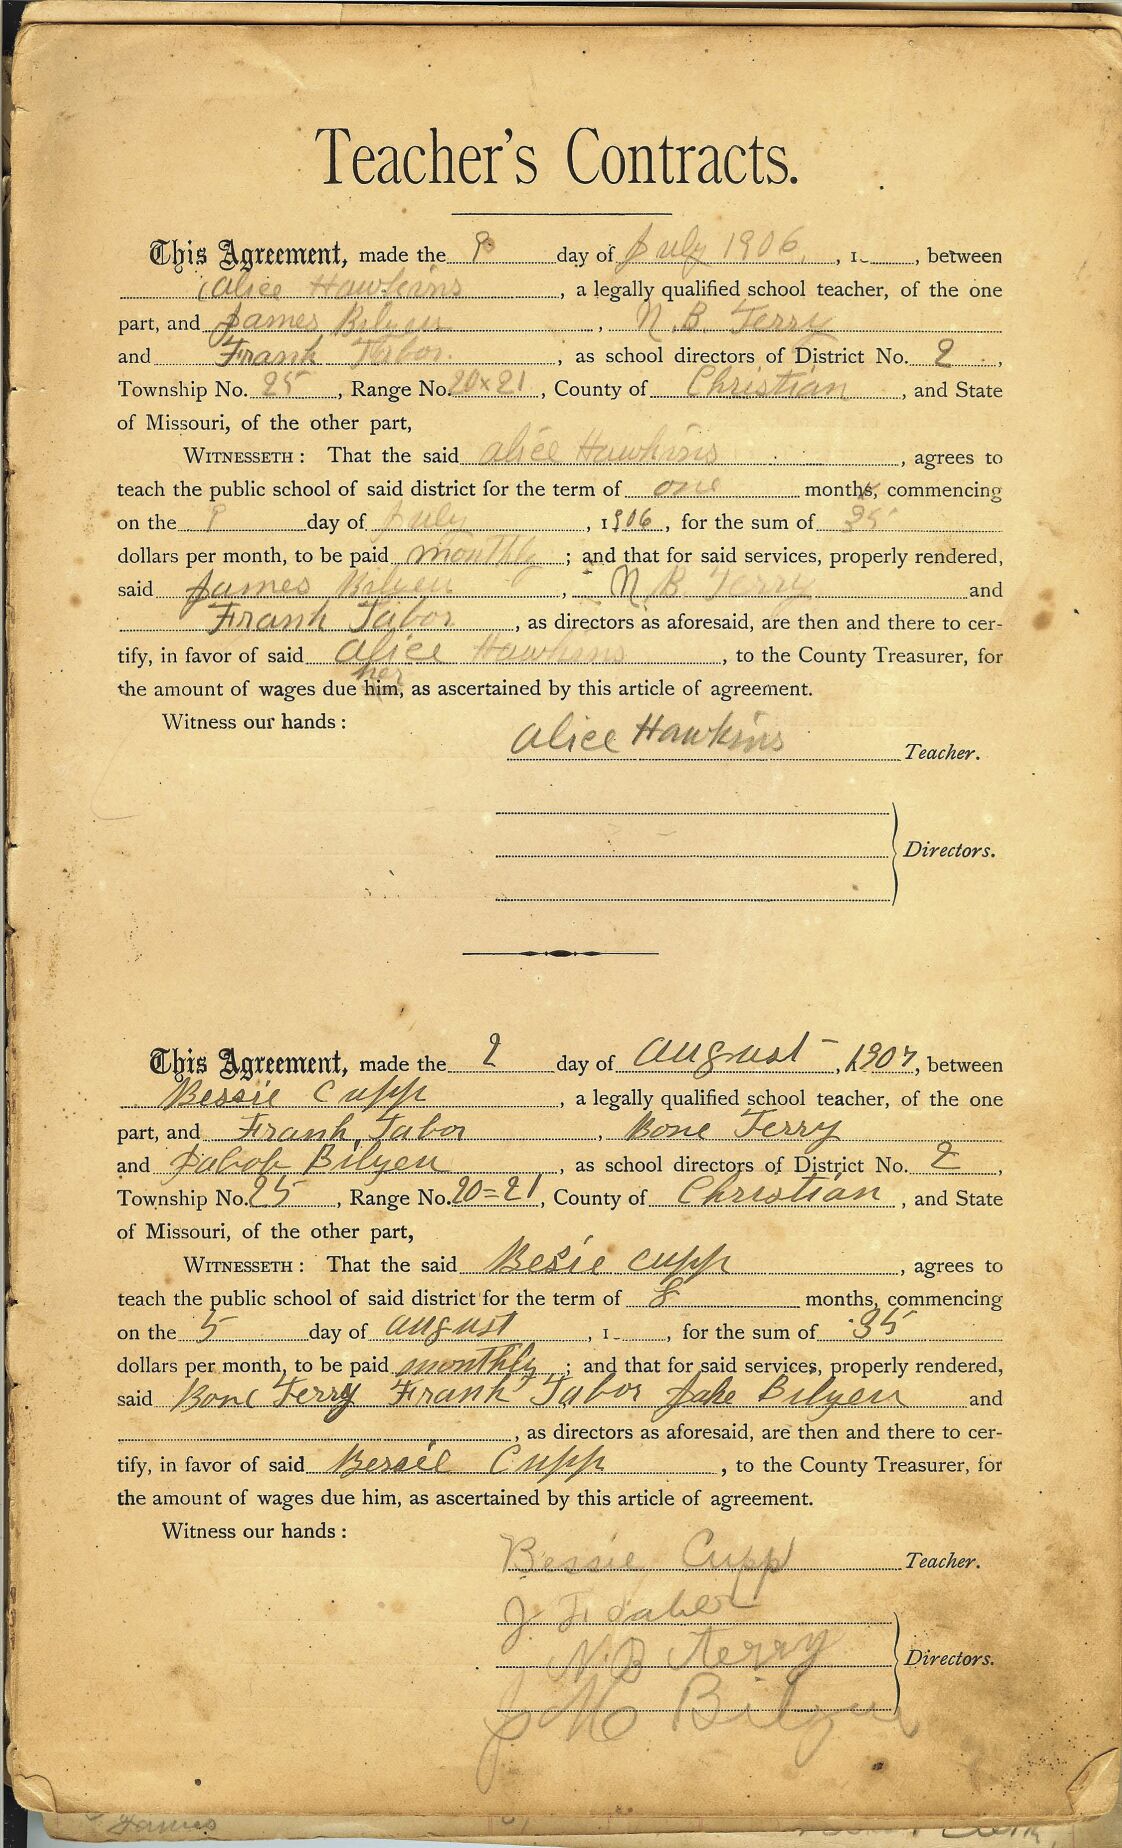 Teacher's Contracts.
This Agreement, made the 9 day of July 1906, 1 , between
Alice Hawkins , a legally qualified school teacher, of the one
part, and James Bilyeu , N.B. Terry
and Frank Tabor. , as school directors of District No. 2 ,
Township No. 25 , Range No. 20x21 , County of Christian , and State
of Missouri, of the other part,
WITNESSETH: That the said Alice Hawkins , agrees to
teach the public school of said district for the term of one months, commencing
on the 9 day of July , 1906 , for the sum of 35
dollars per month, to be paid monthly ; and that for said services, properly rendered,
said James Bilyeu , N. B. Terry and
Frank Tabor , as directors as aforesaid, are then and there to cer-
tify, in favor of said Alice Hawkins , to the County Treasurer, for
her
the amount of wages due him, as ascertained by this article of agreement.
Witness our hands:
Alice Hawkins Teacher.
Directors.
This Agreement, made the 2 day of August , 1907, between
Bessie Cupp , a legally qualified school teacher, of the one
part, and Frank Tabor , Bone Terry
and Bilyeu , as school directors of District No. 2 ,
Township No. 25 , Range No. 20=21 , County of Christian , and State
of Missouri, of the other part,
WITNESSETH: That the said Besie Cupp , agrees to
teach the public school of said district for the term of 8 months, commencing
on the 5 day of August , 1 , for the sum of 35
dollars per month, to be paid monthly ; and that for said services, properly rendered,
said Bone Terry Frank Tabor Jake Bilyeu and
, as directors as aforesaid, are then and there to cer-
tify, in favor of said Bessie Cupp , to the County Treasurer, for
the amount of wages due him, as ascertained by this article of agreement.
Witness our hands:
Bessie Cupp Teacher.
J. F. Taber
N.B Terry Directors.
J M Bilyeu
James